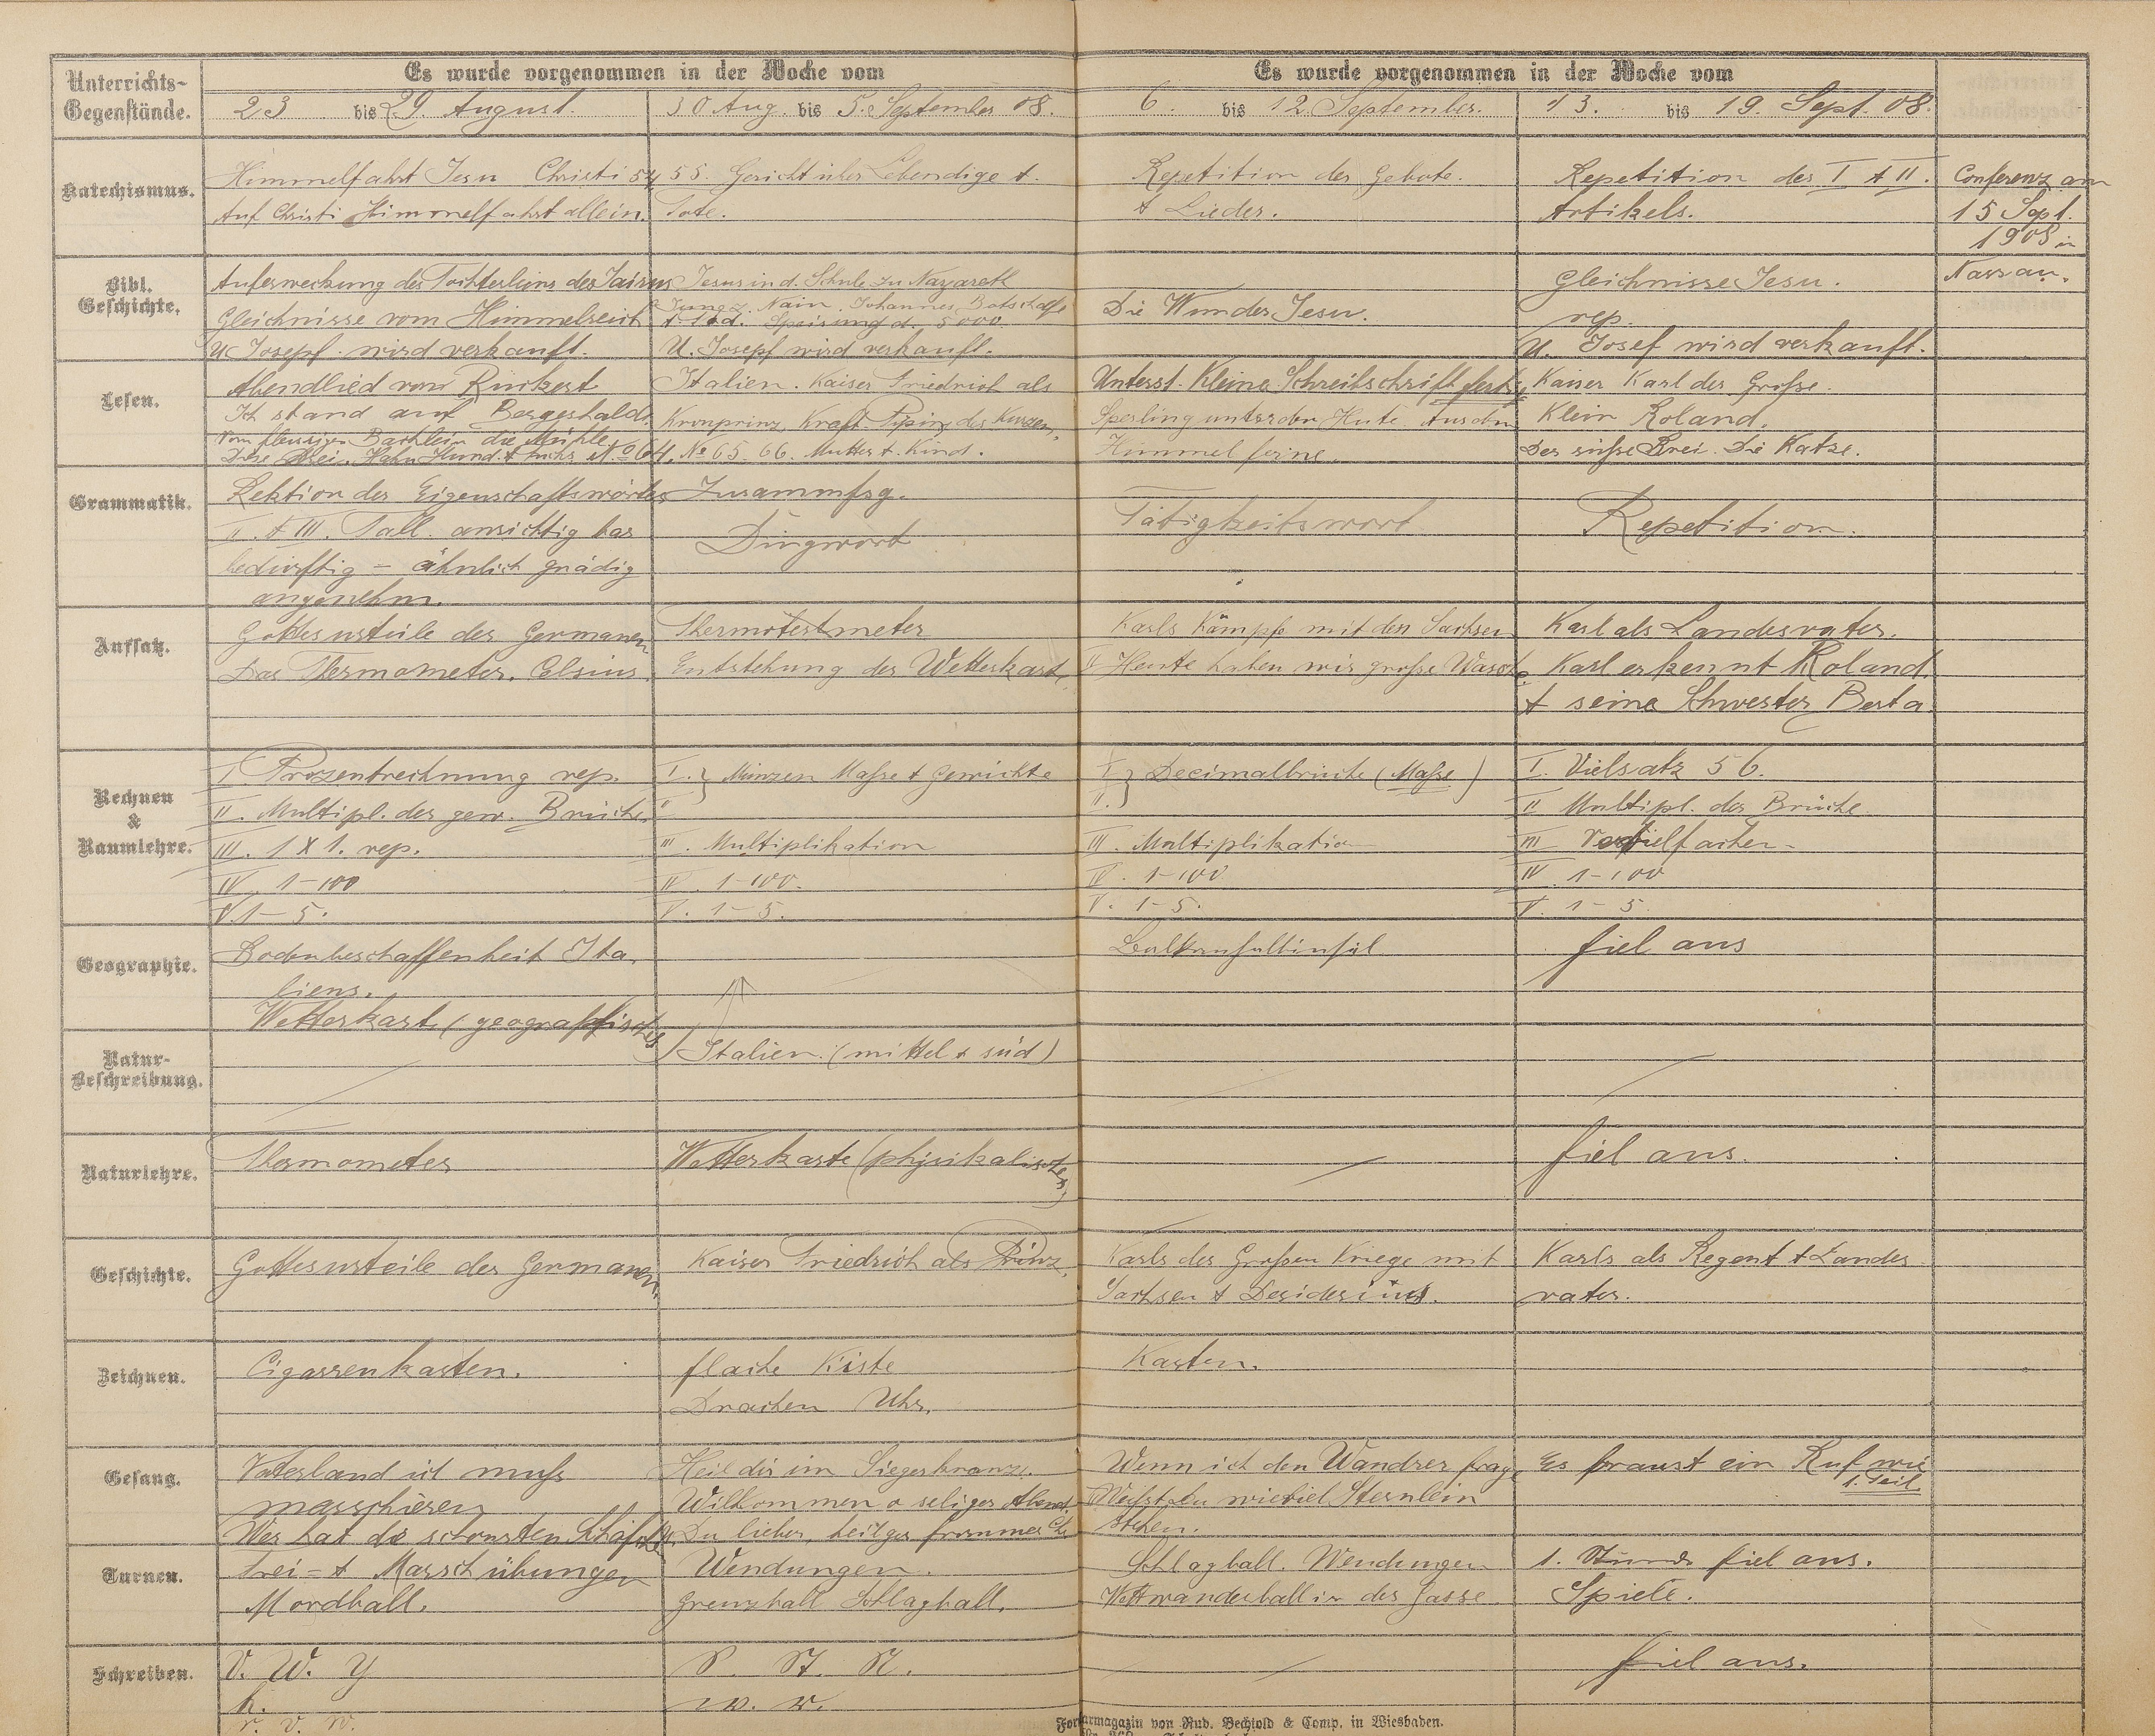 Unterrichts-
Gegenstände.
Es wurde vorgenommen in der Woche vom
Es wurde vorgenommen in der Woche vom
23 bis 29. August.
30 Aug. bis 5. September 08.
6. bis 12. September.
13. bis 19. Sept. 08.
Katechismus.
Himmelfahrt Jesu Christi 54
Auf Christi Himmelfahrt allein.
55. Gericht über Lebendige +
Tote.
Repetition der Gebote.
+ Lieder.
Repetition des I + II.
Artikels.
Conferenz am
15 Sept.
1908 in
Nassau.
Bibl.
Geschichte.
Auferweckung des Töchterleins des Jairus
Gleichnisse vom Himmelreich
U. Josepf wird verkauft.
Jesus in d. Schule zu Nazareth
Jüng. z. Nain. Johannes Botschaft
+ Tod. Speisung d. 5000.
U. Josepf wird verkauft.
Die Wunder Jesu.
Gleichnisse Jesu.
rep.
U. Josef wird verkauft.
Lesen.
Abendlied von Rückert
Ich stand auf Bergeshalde.
Vom fleissigen Bächlein die Mühle
Hahn Hund + Fuchs No 64.
Italien. Kaiser Friedrich als
Kronprinz. Kraft Pipins des Kurzen.
No 65. 66. Mutter + Kind.
Unterst. Kleine Schreibschrift fertig
Sperling unter dem Hute Aus dem
Himmel ferne.
Kaiser Karl der Große.
Klein Roland.
Der süße Brei. Die Katze.
Grammatik.
Rektion der Eigenschaftswörter
II. + III. Fall. ansichtig bar
bedürftig - ähnlich gnädig
angenehm.
Zusammfsg.
Dingwort
Tätigkeitswort
Repetition.
Aufsatz.
Gottesurteile der Germanen
Das Thermometer. Celsius.
Entstehung der Wetterkarte
Karls Kämpfe mit den Sachsen
II Heute haben wir große Wäsche
Karl als Landesvater.
Karl erkennt Roland.
+ seine Schwester Berta
Rechnen
&
Raumlehre.
I Prozentrechnung rep.
II. Multipl. der gew. Brüche
III. 1 X 1. rep.
IV. 1-100
V. 1-5.
I. } Münzen Maße + Gewichte
II
III. Multiplikation
IV. 1-100.
V. 1-5.
I } Decimalbrüche (Maße)
II.
III. Multiplikation
IV. 1-100
V. 1-5.
I. Vielsatz 56.
II Multipl. der Brüche.
III Vervielfachen -
IV. 1-100
V. 1-5.
Geographie.
Bodenbeschaffenheit Ita-
liens.
Wetterkarte (geographisches)
Italien. (mittel + süd)
Balkanhalbinsel
fiel aus
Natur-
Beschreibung.
Naturlehre.
Thermometer
Wetterkarte (physikalisches)
fiel aus.
Geschichte.
Gottesurteile der Germanen.
Kaiser Friedrich als Prinz.
Karls des Großen Kriege mit
Sachsen + Desiderius.
Karls als Regent + Landes
vater.
Zeichnen.
Cigarrenkasten.
flache Kiste
Drachen Uhr.
Kasten.
Gesang.
Vaterland ich muß
marschieren
Wer hat die schönsten Schäfchen
Heil dir im Siegerkranz.
Willkommen o seliger Abend.
Du lieber, heilger frommer Ch.
Wenn ich den Wandrer frage
Weißt du wieviel Sternlein
stehen.
Es braust ein Ruf wie
1. Teil.
Turnen.
Frei = + Marschübungen
Mordball.
Wendungen.
Grenzball Schlagball.
Schlagball. Wendungen
Wettwanderball in der Gasse.
1. Stunde fiel aus.
Spiele.
Schreiben.
V. W. Y
k.
r. v. w.
P. St. R.
w. v.
fiel aus.
Formarmagazin von Rud. Bechtold & Comp. in Wiesbaden.